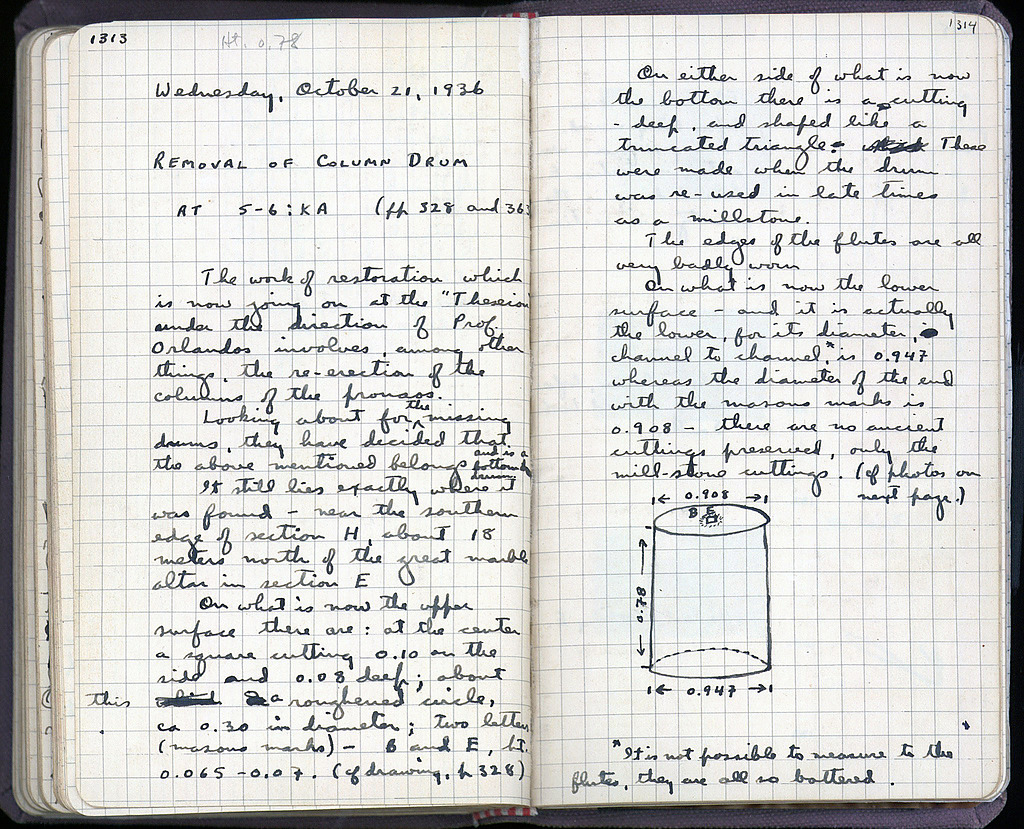 1313
Ht. 0.78
Wednesday, October 21, 1936
REMOVAL OF COLUMN DRUM
AT 5-6:KA (pp 328 and 363
The work of restoration which
is now going on at the "Theseion
under the direction of Prof.
Orlandos involves, among other
things, the re-erection of the
columns of the pronaos.
Looking about for the missing
drums, they have decided that
the above mentioned belongs and is a bottom drum.
It still lies exactly where it
was found - near the southern
edge of section H, about 18
meters north of the great marble
altar in section E
On what is now the upper
surface there are: at the center
a square cutting 0.10 on the
side and 0.08 deep; about
this a roughened circle,
ca 0.30 in diameter; two letters
(masons marks) - B and E, ht.
0.065 - 0.07. (cf drawing, p 328)
1314
On either side of what is now
the bottom there is a cutting
- deep, and shaped like a
truncated triangle. These
were made when the drum
was re-used in late times
as a millstone.
The edges of the flutes are all
very badly worn
On what is now the lower
surface - and it is actually
the lower, for its diameter,
channel to channel,* is 0.947
whereas the diameter of the end
with the masons marks is
0.908 - there are no ancient
cuttings preserved, only the
mill-stone cuttings. (cf photos on
next page.)
0.908
B E
0.78
0.947
*It is not possible to measure to the
flutes, they are all so battered.